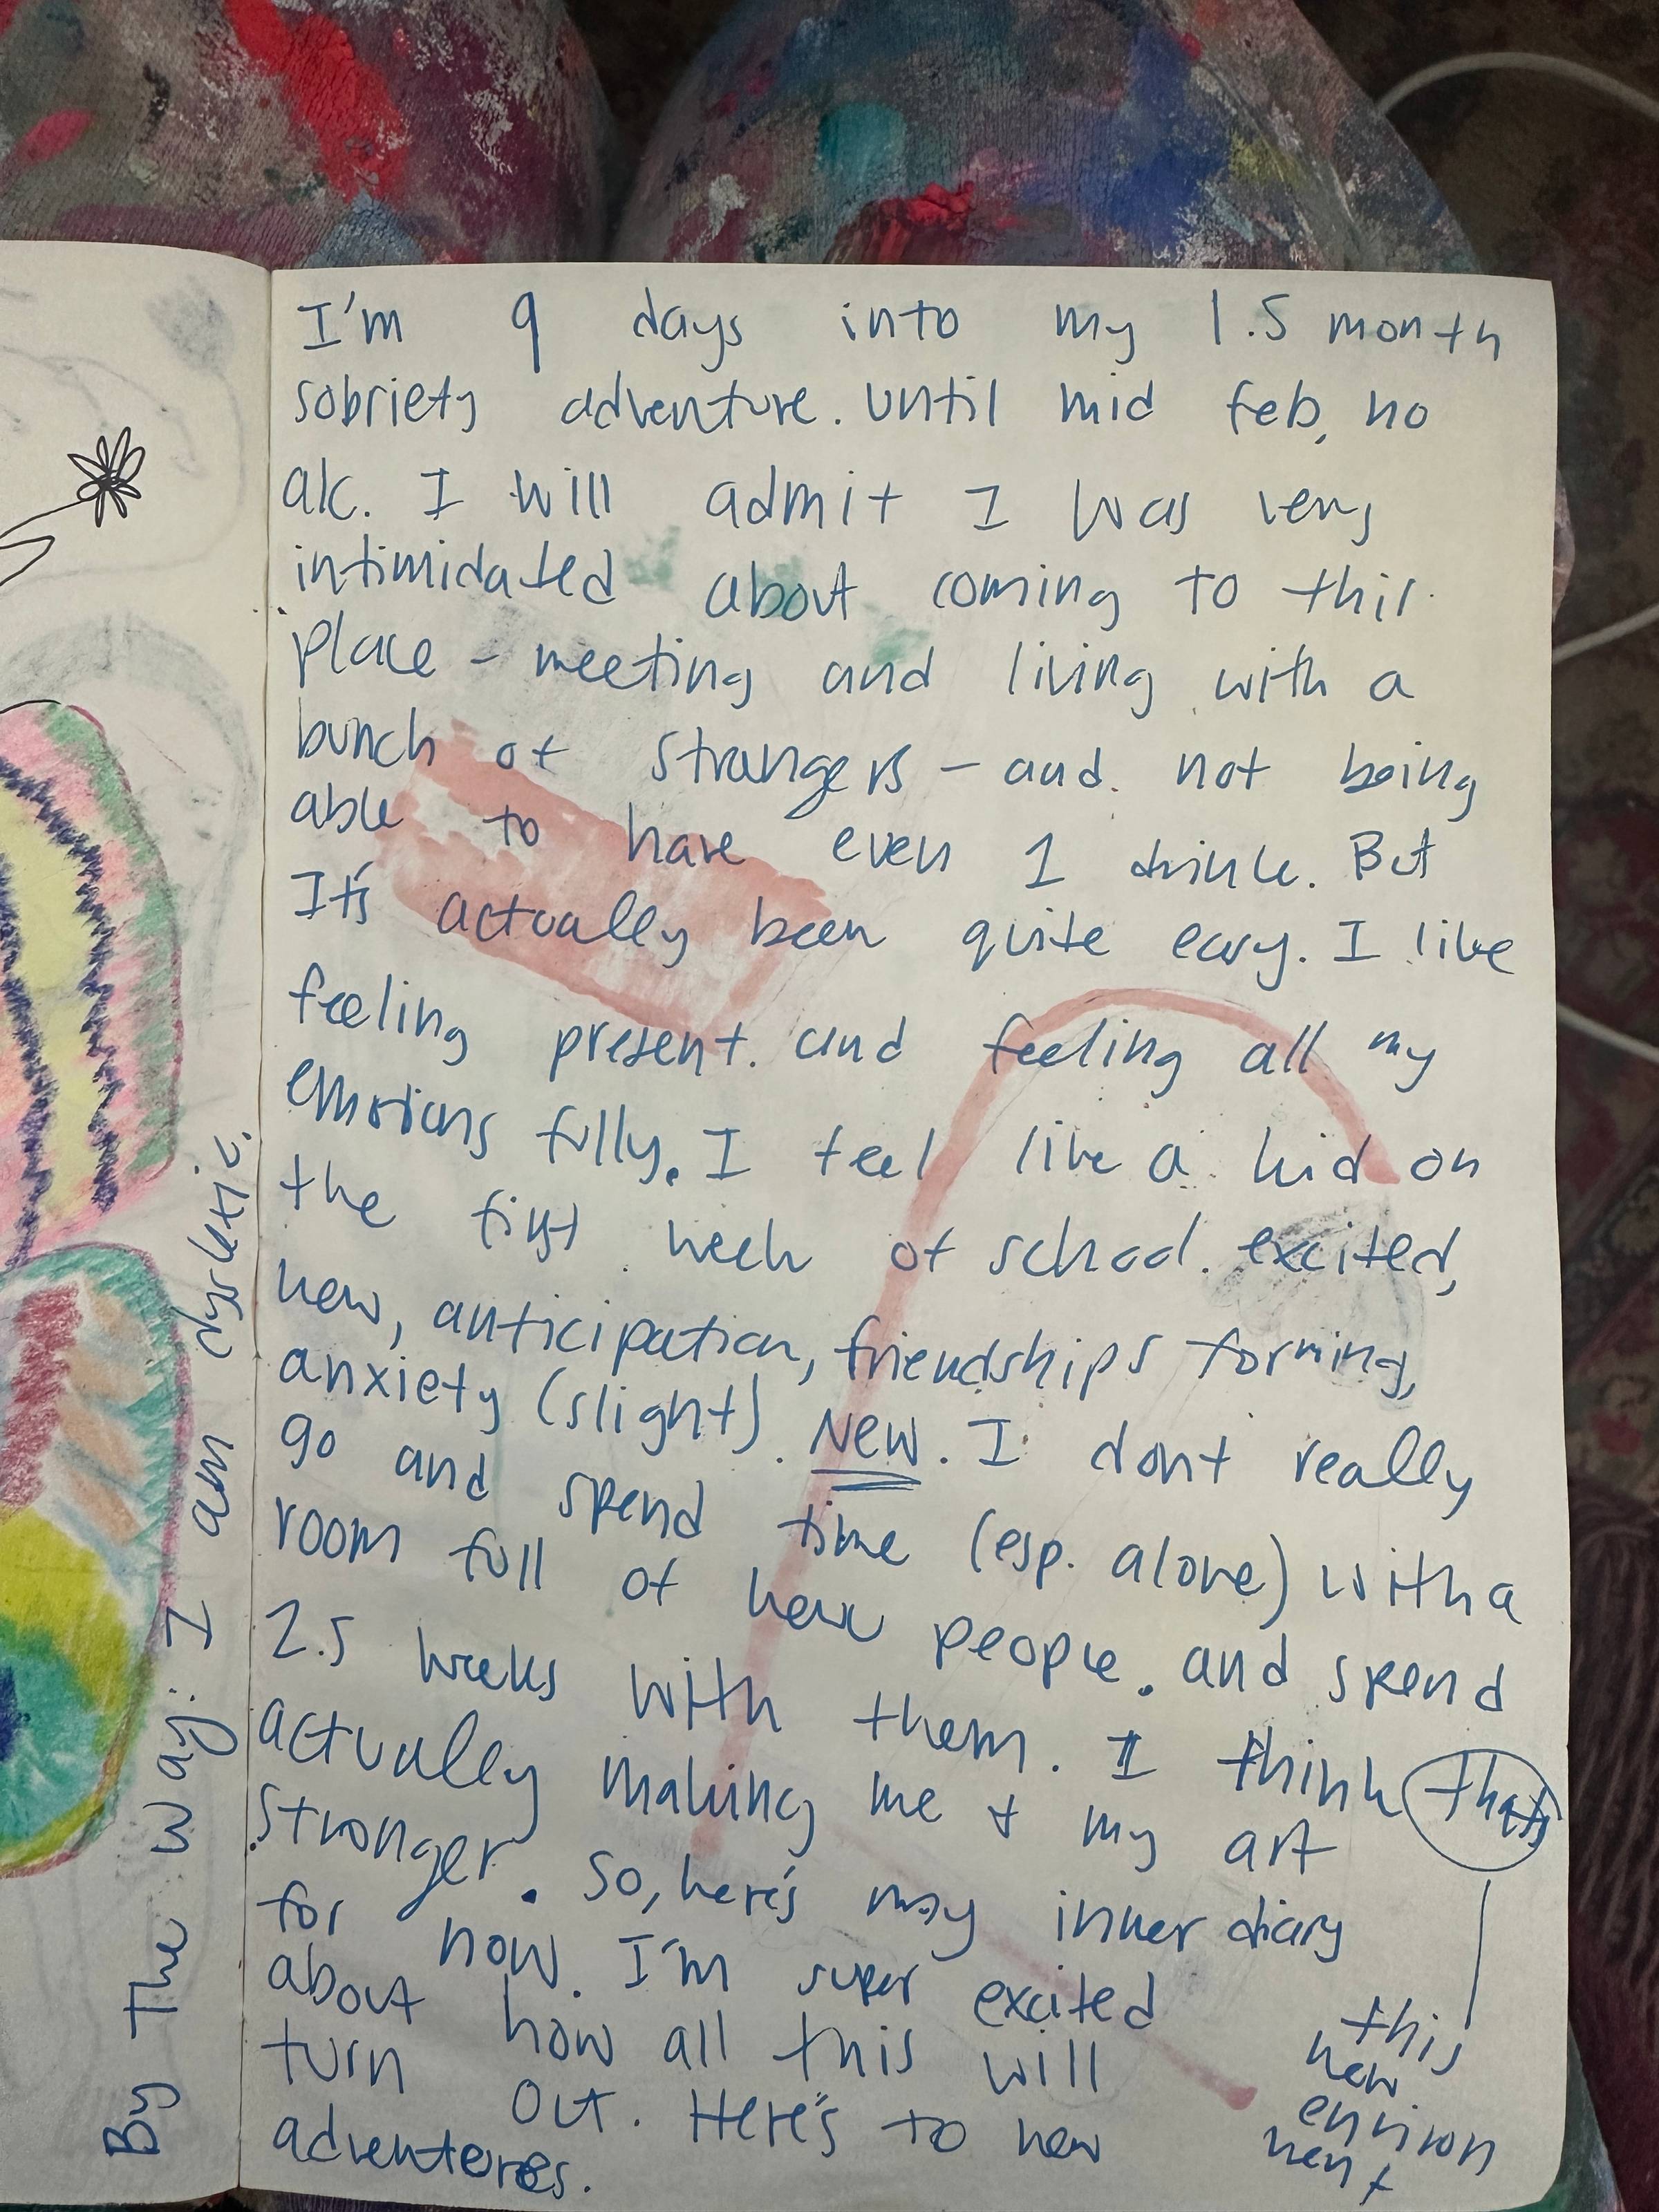 I'm 9 days into my 1.5 month
sobriety adventure. until mid feb, no
alc. I will admit I was very
intimidated about coming to this
place - meeting and living with a
bunch of strangers - and. not being
able to have even 1 drink. But
It's actually been quite easy. I like
feeling present. and feeling all my
emotions fully. I feel like a kid on
the first week of school. excited,
new, anticipation, friendships forming,
anxiety (slight). NEW. I dont really
go and spend time (esp. alone) with a
room full of new people. and spend
2.5 weeks with them. I think thats
actually making me + my art
stronger. So, here's my inner diary
for now. I'm super excited
about how all this will
turn out. Here's to new
adventeres.
this
new
environ
nent
By The way: I am dyslexic.